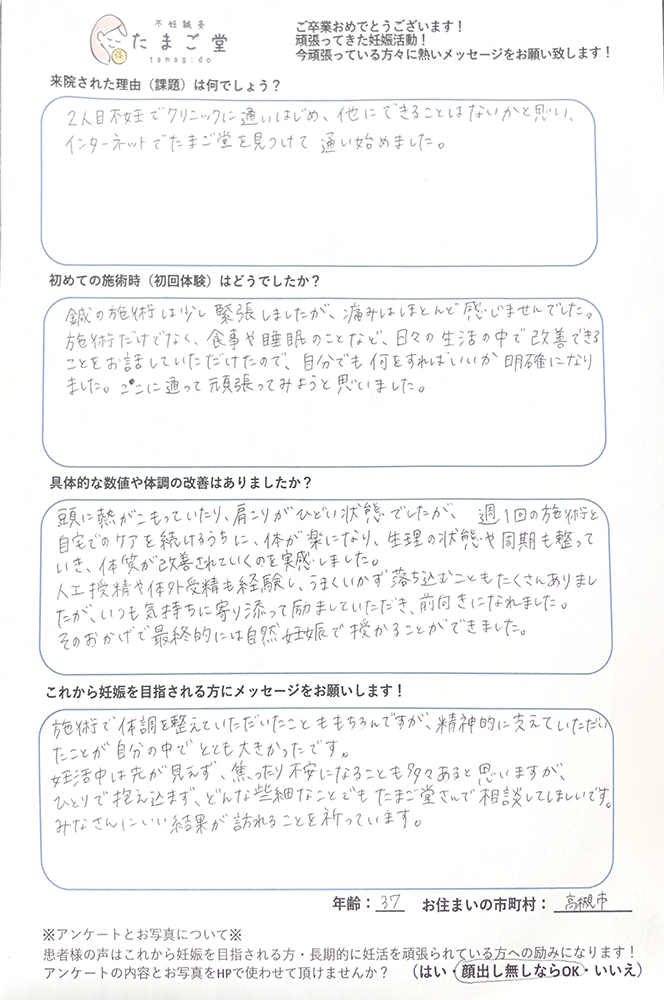 不妊鍼灸
たまご堂
tamago:do
ご卒業おめでとうございます！
頑張ってきた妊娠活動！
今頑張っている方々に熱いメッセージをお願い致します！
来院された理由（課題）は何でしょう？
2人目不妊でクリニックに通いはじめ、他にできることはないかと思い、
インターネットでたまご堂を見つけて通い始めました。
初めての施術時（初回体験）はどうでしたか？
鍼の施術は少し緊張しましたが、痛みはほとんど感じませんでした。
施術だけでなく、食事や睡眠のことなど、日々の生活の中で改善できる
ことをお話していただけたので、自分でも何をすればいいか明確になり
ました。ここに通って頑張ってみようと思いました。
具体的な数値や体調の改善はありましたか？
頭に熱がこもっていたり、肩こりがひどい状態でしたが、週1回の施術と
自宅でのケアを続けるうちに、体が楽になり、生理の状態や周期も整って
いき、体質が改善されていくのを実感しました。
人工授精や体外受精も経験し、うまくいかず落ち込むこともたくさんありまし
たが、いつも気持ちに寄り添って励ましていただき、前向きになれました。
そのおかげで最終的には自然妊娠で授かることができました。
これから妊娠を目指される方にメッセージをお願いします！
施術で体調を整えていただいたことももちろんですが、精神的に支えていただい
たことが自分の中でとても大きかったです。
妊活中は先が見えず、焦ったり不安になることも多々あると思いますが、
ひとりで抱え込まず、どんな些細なことでもたまご堂さんで相談してほしいです。
みなさんにいい結果が訪れることを祈っています。
年齢：37 お住まいの市町村：高槻市
※アンケートとお写真について※
患者様の声はこれから妊娠を目指される方・長期的に妊活を頑張られている方への励みになります！
アンケートの内容とお写真をHPで使わせて頂けませんか？ （はい・顔出し無しならOK・いいえ）